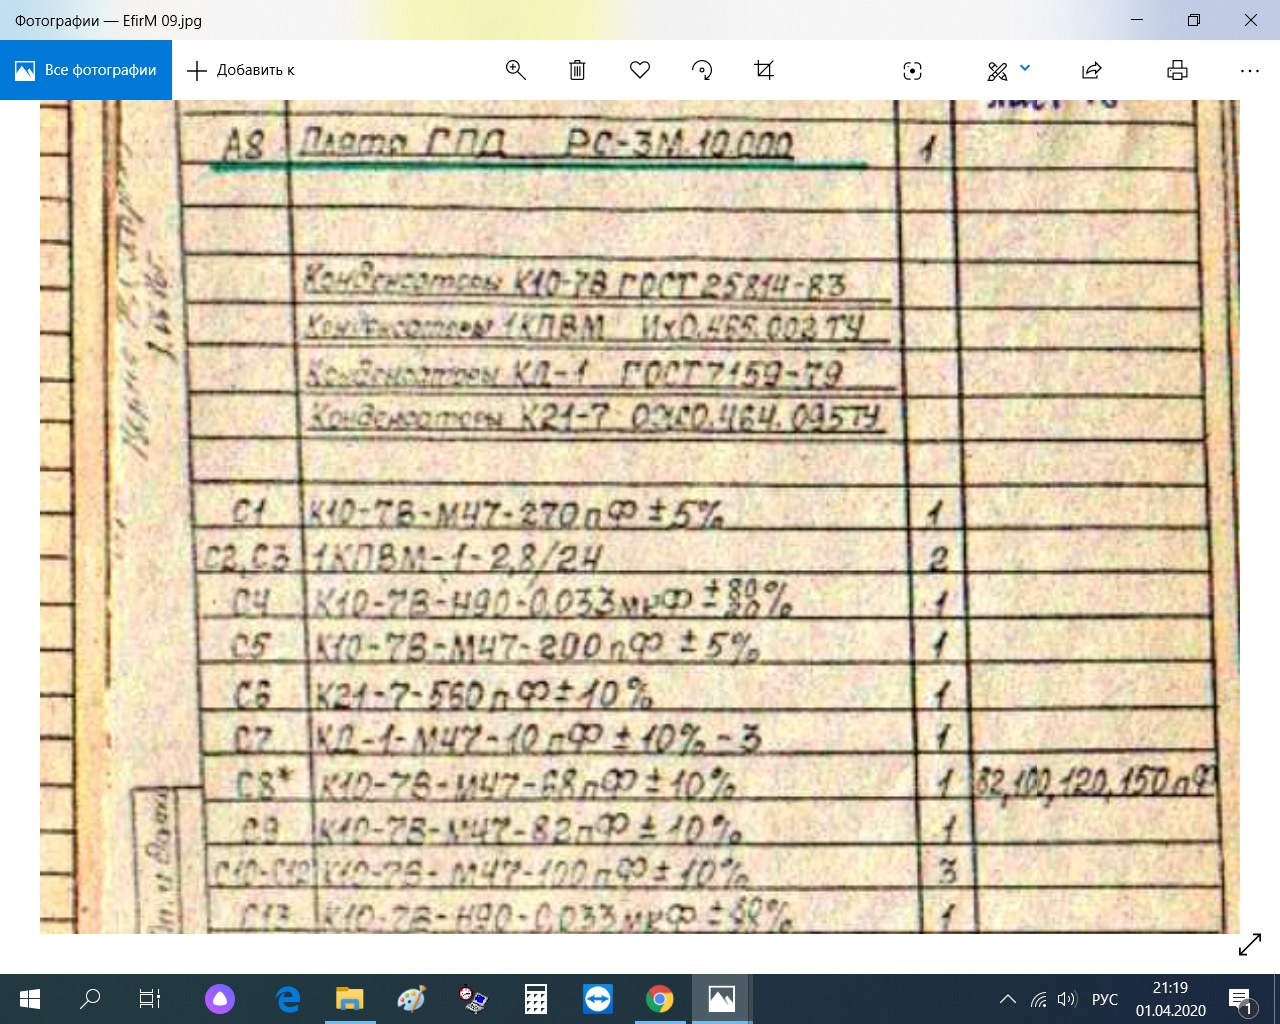 Фотографии — EfirM 09.jpg
Все фотографии
Добавить к
А8 Плата ГПД РС-3М.10.000 1
Конденсаторы К10-7В ГОСТ 25814-83
Конденсаторы 1КПВМ ИХ0.465.002ТУ
Конденсаторы КД-1 ГОСТ 7159-79
Конденсаторы К21-7 ОЖ0.464.095ТУ
С1 К10-7В-М47-270пФ ±5% 1
С2,С3 1КПВМ-1-2,8/24 2
С4 К10-7В-Н90-0,033мкФ ±80/20% 1
С5 К10-7В-М47-200пФ ±5% 1
С6 К21-7-560пФ±10% 1
С7 КД-1-М47-10пФ ±10%-3 1
С8* К10-7В-М47-68пФ±10% 1 82,100,120,150пФ
С9 К10-7В-М47-82пФ±10% 1
С10-С12 К10-7В-М47-100пФ±10% 3
С13 К10-7В-Н90-0,033мкФ 1
РУС
21:19
01.04.2020
1